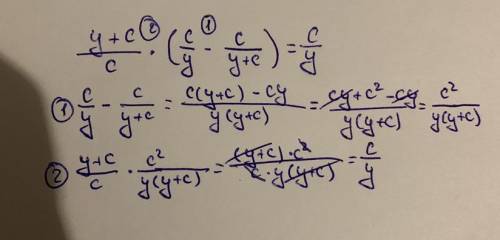 (y+c)/c ② · (c/y - ① c/(y+c)) = c/y
① c/y - c/(y+c) = (c(y+c) - cy)/(y(y+c)) = (cy + c² - cy)/(y(y+c)) = c²/(y(y+c))
② (y+c)/c · c²/(y(y+c)) = ((y+c) · c²)/(c · y(y+c)) = c/y